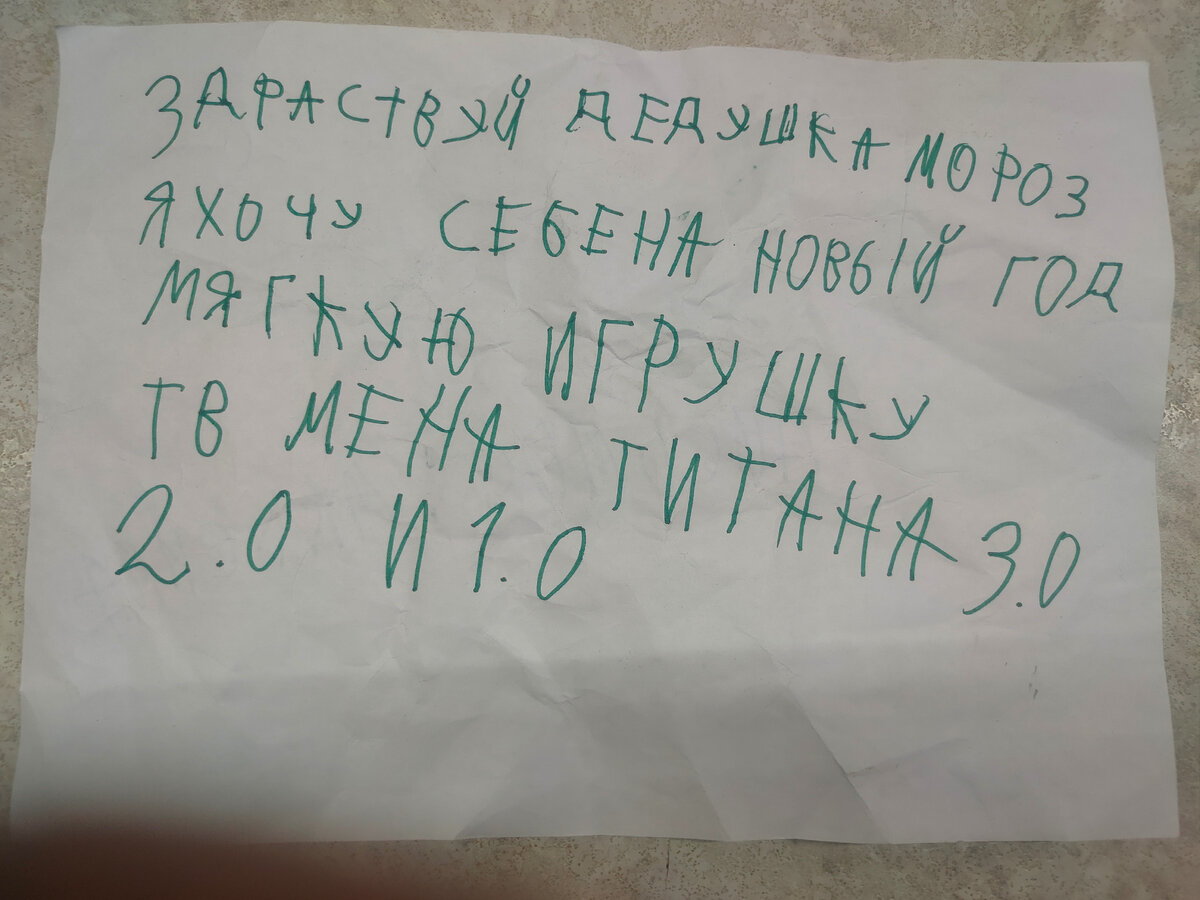 ЗДРАСТВУЙ ДЕДУШКА МОРОЗ
Я ХОЧУ СЕБЕНА НОВЫЙ ГОД
МЯГКУЮ ИГРУШКУ
ТВ МЕНА ТИТАНА 3.0
2.0 И 1.0